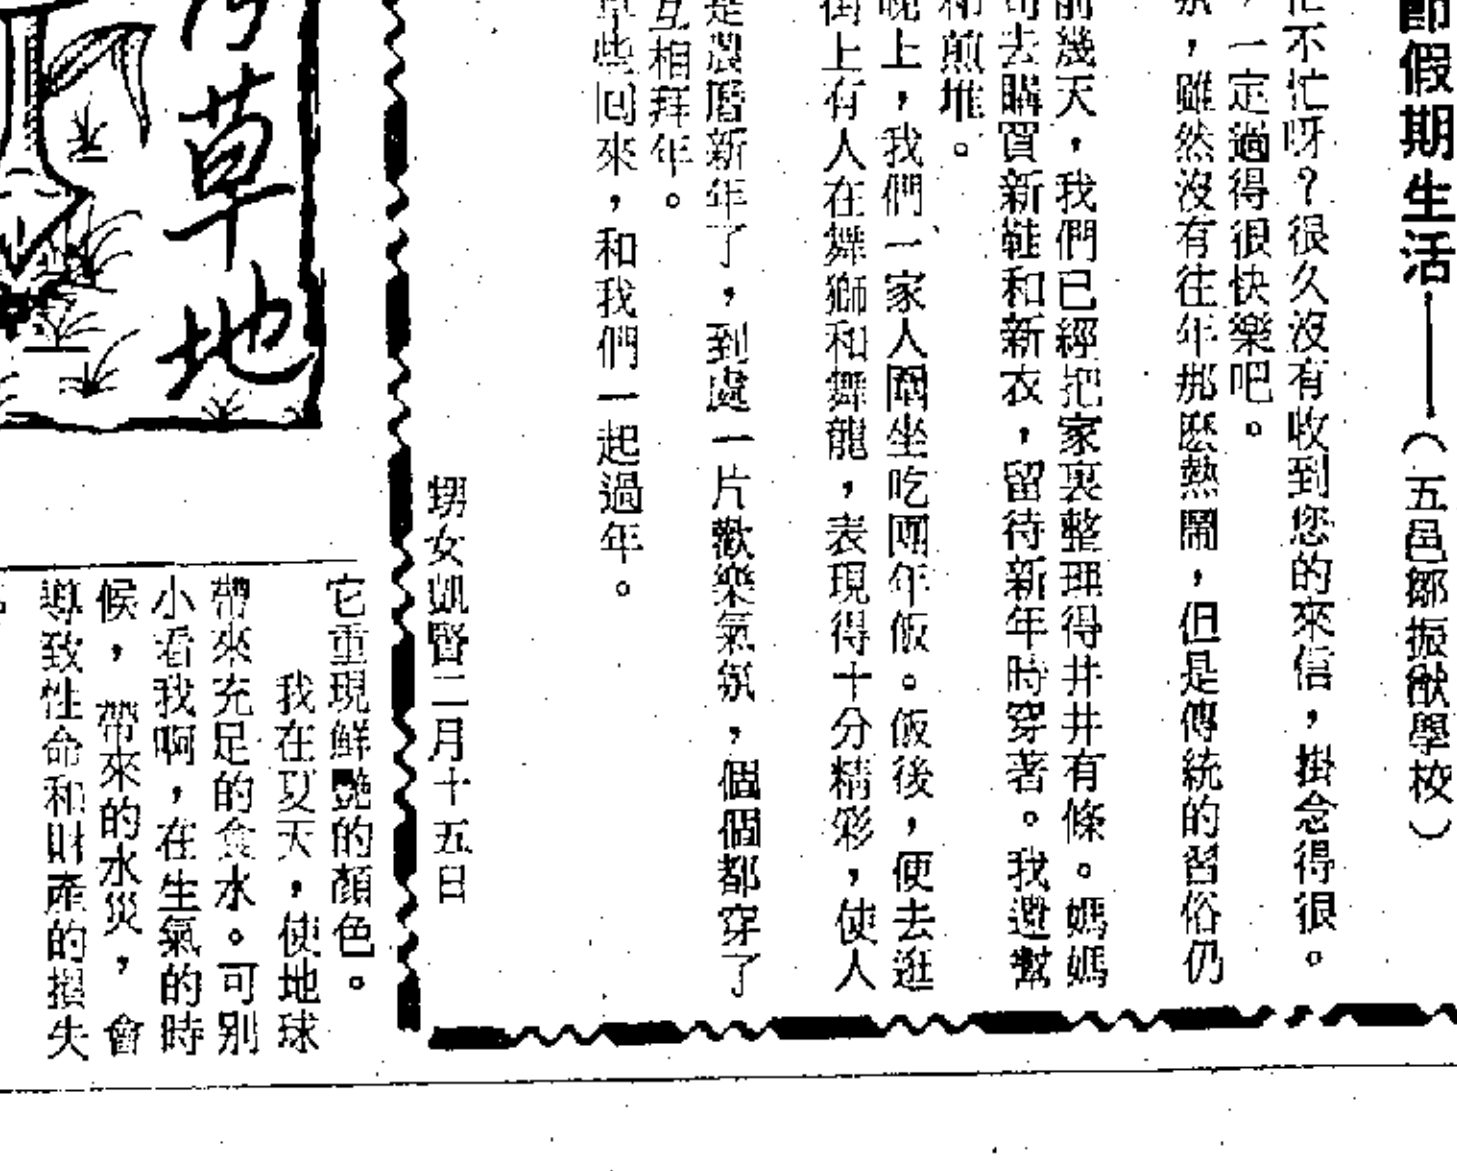 節假期生活——（五邑鄒振猷學校）
忙不忙呀？很久沒有收到您的來信，掛念得很。
，一定過得很快樂吧。
氛，雖然沒有往年那麽熱鬧，但是傳統的習俗仍
前幾天，我們已經把家裏整理得井井有條。媽媽
司去購買新鞋和新衣，留待新年時穿著。我還幫
和煎堆。
晚上，我們一家人圍坐吃團年飯。飯後，便去逛
街上有人在舞獅和舞龍，表現得十分精彩，使人
是農曆新年了，到處一片歡樂氣氛，個個都穿了
互相拜年。
早些回來，和我們一起過年。
甥女凱賢二月十五日
草地
它重現鮮艷的顏色。
我在夏天，使地球
帶來充足的食水。可別
小看我啊，在生氣的時
候，帶來的水災，會
導致性命和財產的損失